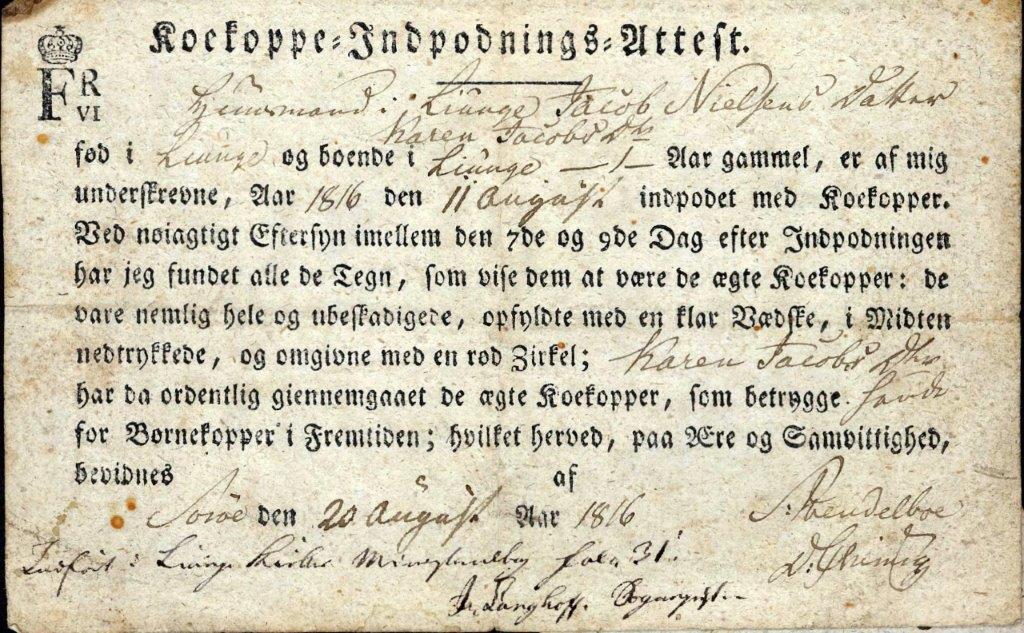 Koekoppe-Indpodnings-Attest.
F R VI
Huusmand i Liunge Jacob Nielsens Datter
Karen Jacobs Dtr
fød i Liunge og boende i Liunge – 1 – Aar gammel, er af mig
underskrevne, Aar 1816 den 11 August indpodet med Koekopper.
Ved nøiagtigt Eftersyn imellem den 7de og 9de Dag efter Indpodningen
har jeg fundet alle de Tegn, som vise dem at være de ægte Koekopper: de
vare nemlig hele og ubeskadigede, opfyldte med en klar Vædske, i Midten
nedtrykkede, og omgivne med en rød Zirkel; Karen Jacobs Dtr
har da ordentlig giennemgaaet de ægte Koekopper, som betrygge
for Børnekopper i Fremtiden; hvilket herved, paa Ære og Samvittighed,
bevidnes af
Soröe den 20 August Aar 1816
Indført i Liunge Kirkes fol. 31.